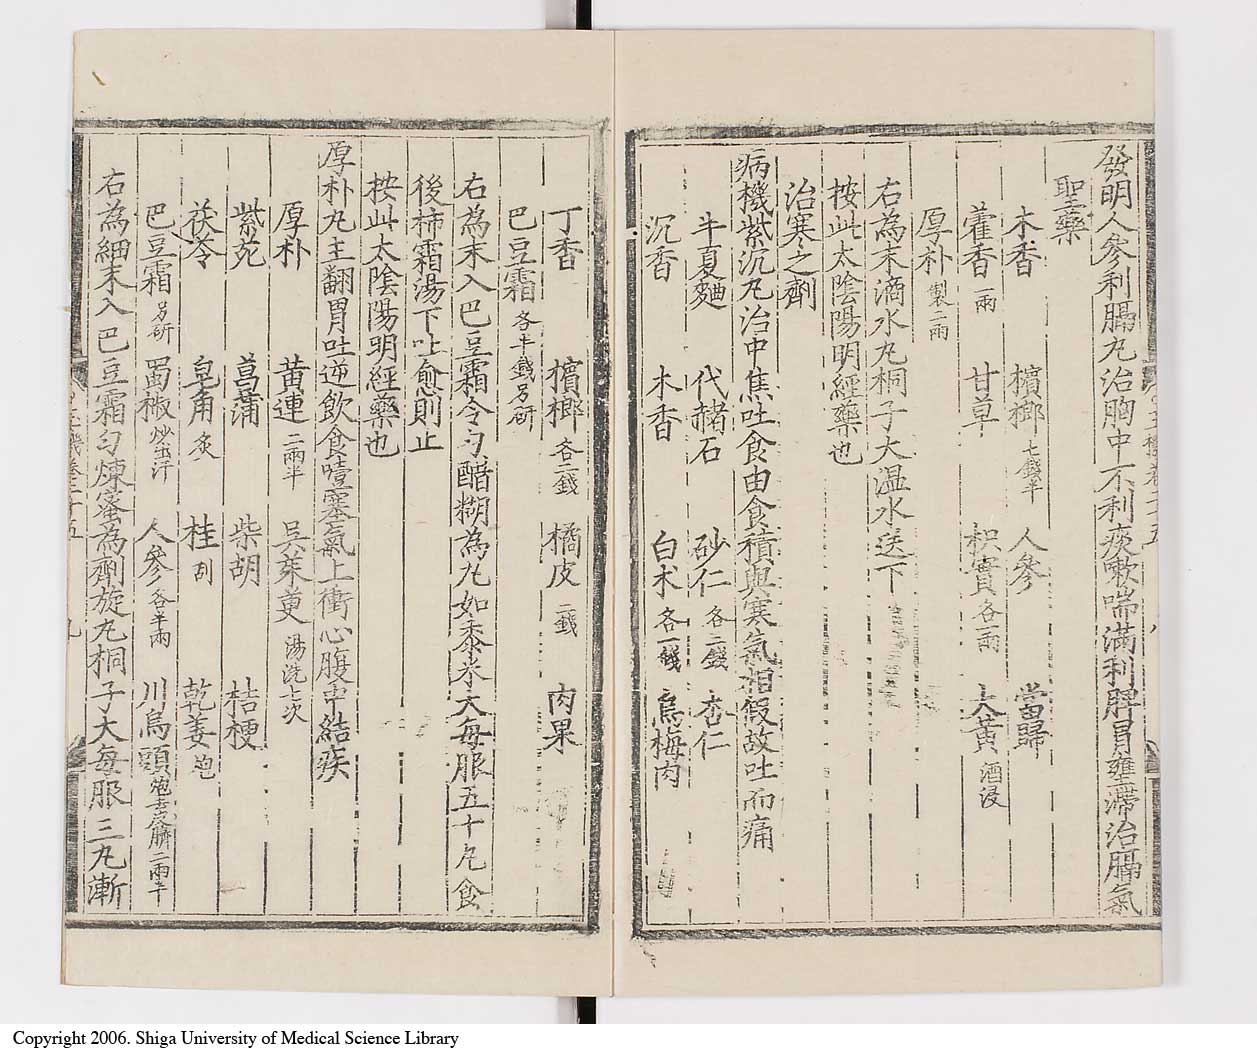 發明人參利膈丸治胸中不利痰嗽喘滿利脾胃壅滯治膈氣
聖藥
木香 檳榔七錢半 人參 當歸
藿香一兩 甘草 枳實各一兩 大黃酒浸
厚朴製二兩
右為末滴水丸桐子大温水送下
按此太陰陽明經藥也
治寒之劑
病機紫沉丸治中焦吐食由食積與寒氣相假故吐而痛
半夏麯 代赭石 砂仁各三錢 杏仁
沉香 木香 白术各一錢 烏梅肉
丁香 檳榔各二錢 橘皮二錢 肉果
巴豆霜各半錢另研
右為末入巴豆霜令勻醋糊為丸如黍米大每服五十丸食
後柿霜湯下吐愈則止
按此太陰陽明經藥也
厚朴丸主翻胃吐逆飲食噎塞氣上衝心腹中結疾
厚朴 黄連二兩半 吳茱萸湯洗七次
紫菀 菖蒲 柴胡 桔梗
茯苓 皂角炙 桂刮 乾姜炮
巴豆霜另研 蜀椒炒出汗 人參各半兩 川烏頭炮去皮臍二兩半
右為細末入巴豆霜勻煉蜜為劑旋丸桐子大每服三丸漸
九
Copyright 2006. Shiga University of Medical Science Library